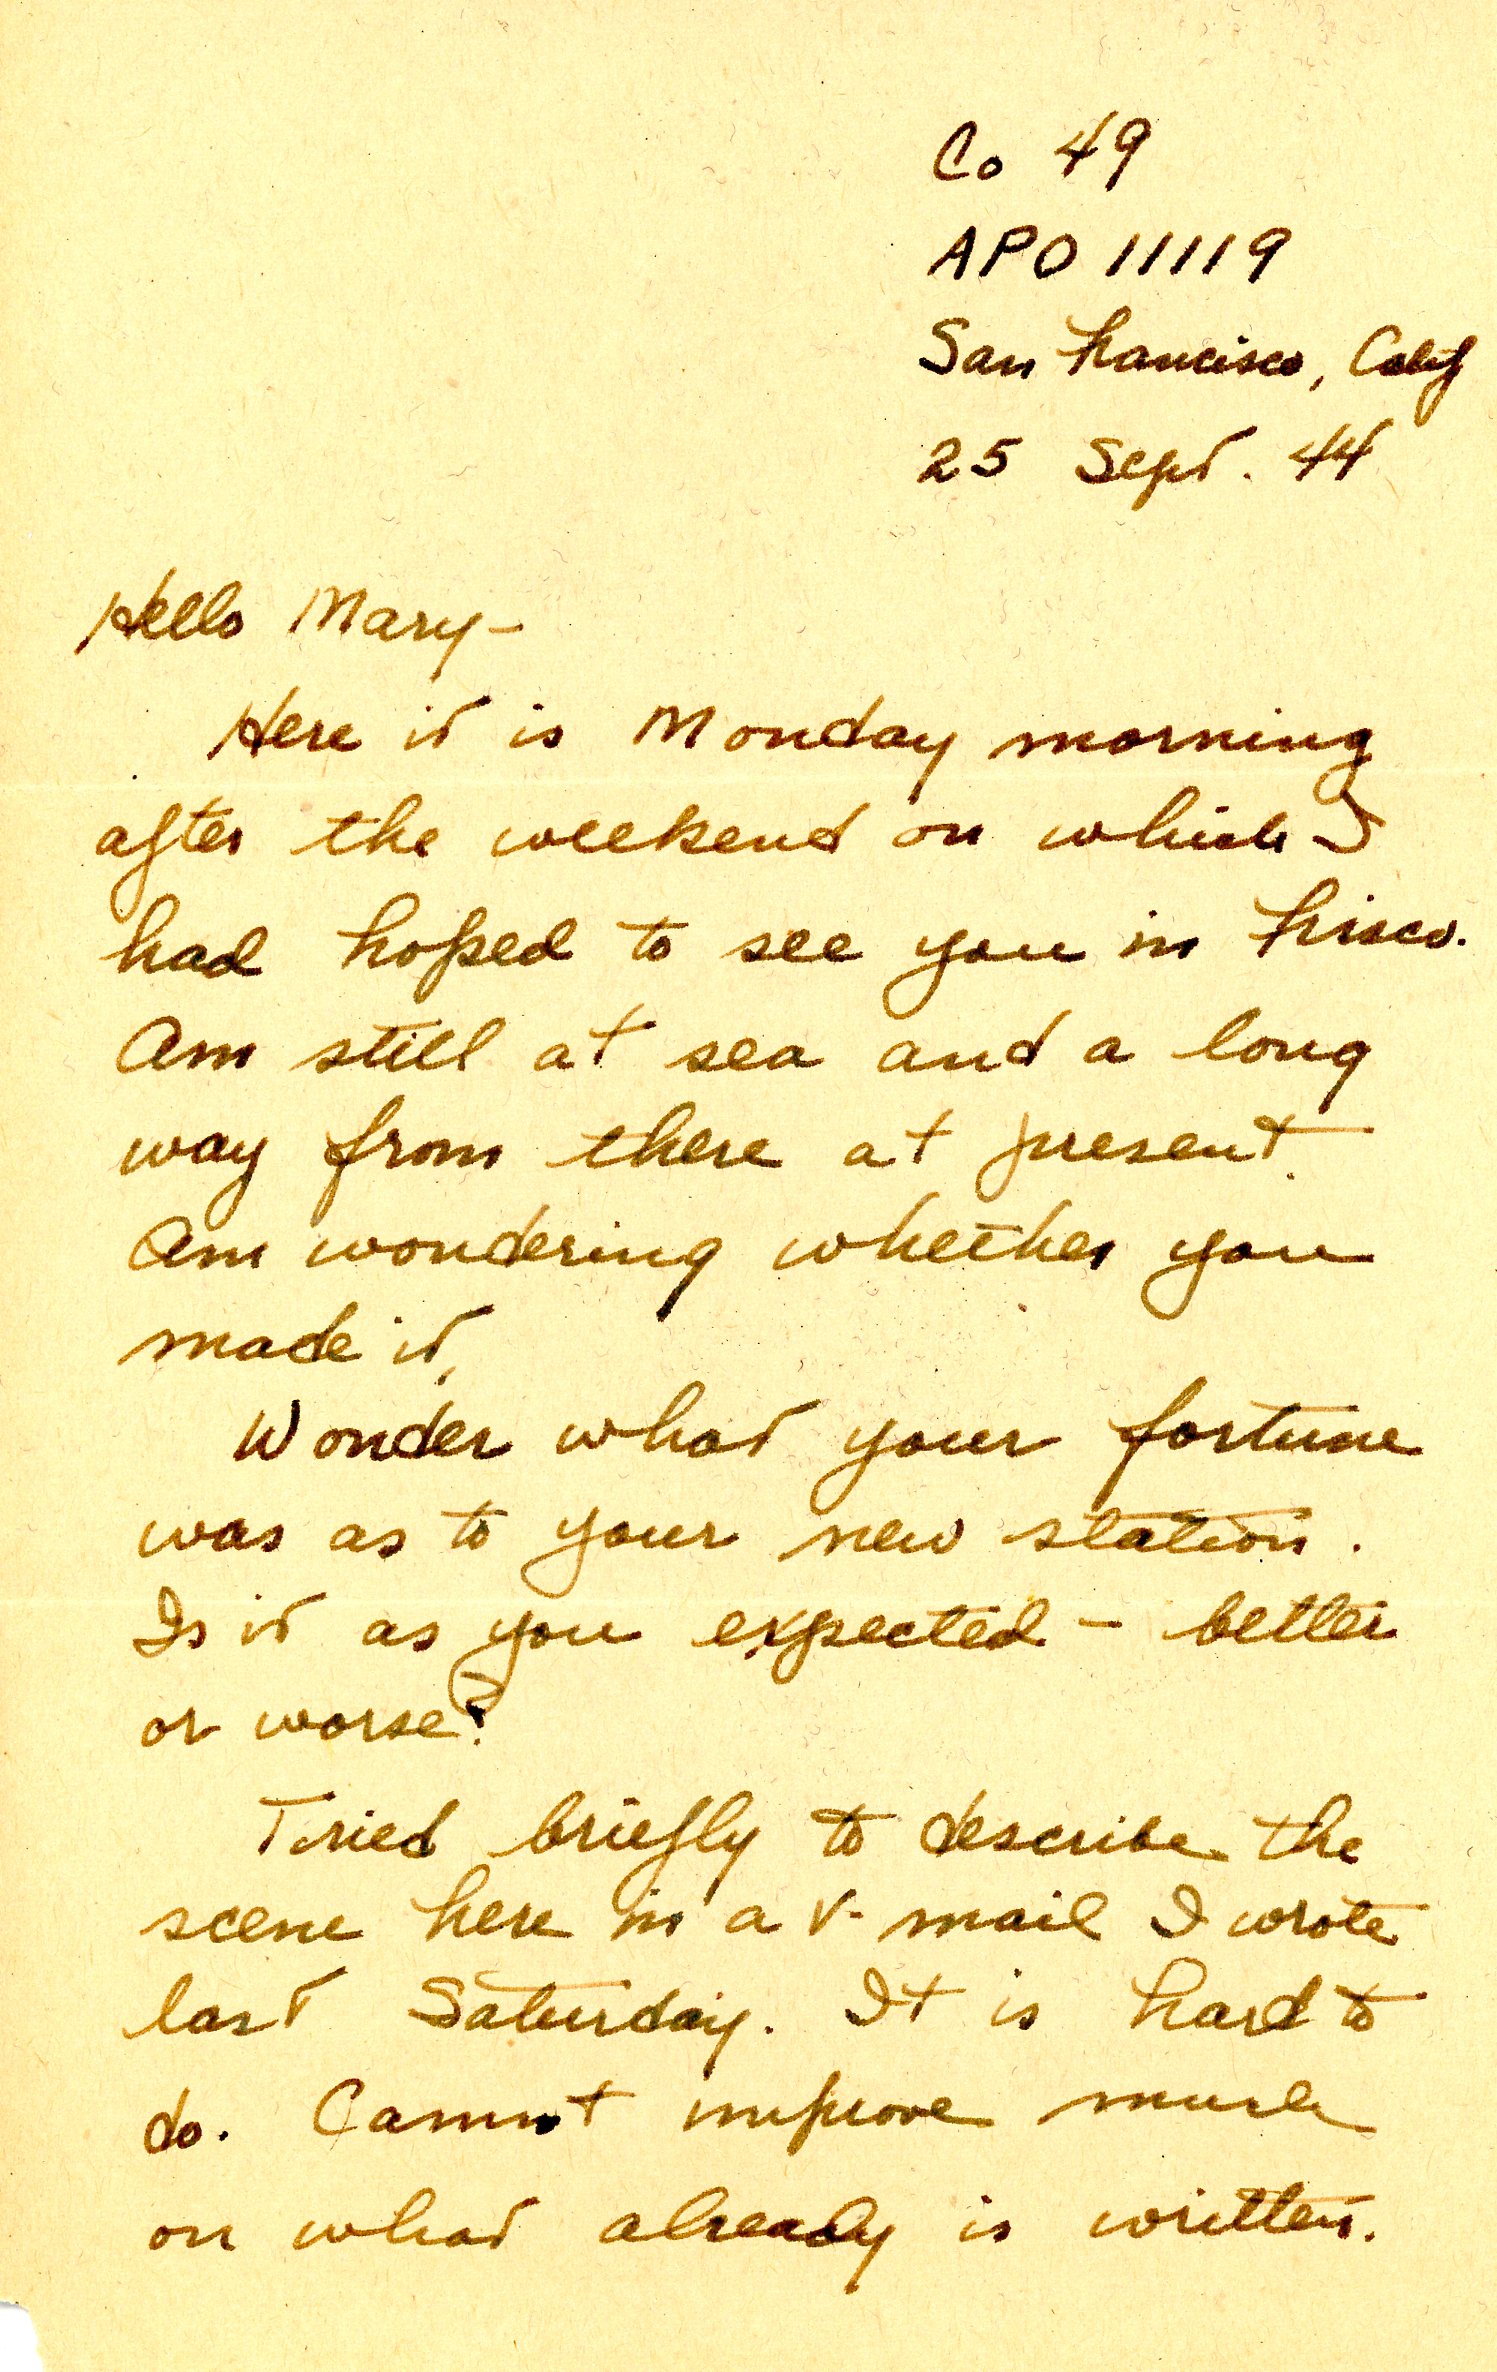 Co 49
APO 11119
San Francisco, Calif
25 Sept. 44
Hello Mary-
Here it is Monday morning
after the weekend on which I
had hoped to see you in Frisco.
Am still at sea and a long
way from there at present.
Am wondering whether you
made it.
Wonder what your fortune
was as to your new station.
Is it as you expected - better
or worse?
Tried briefly to describe the
scene here in a V-mail I wrote
last Saturday. It is hard to
do. Cannot improve much
on what already is written.